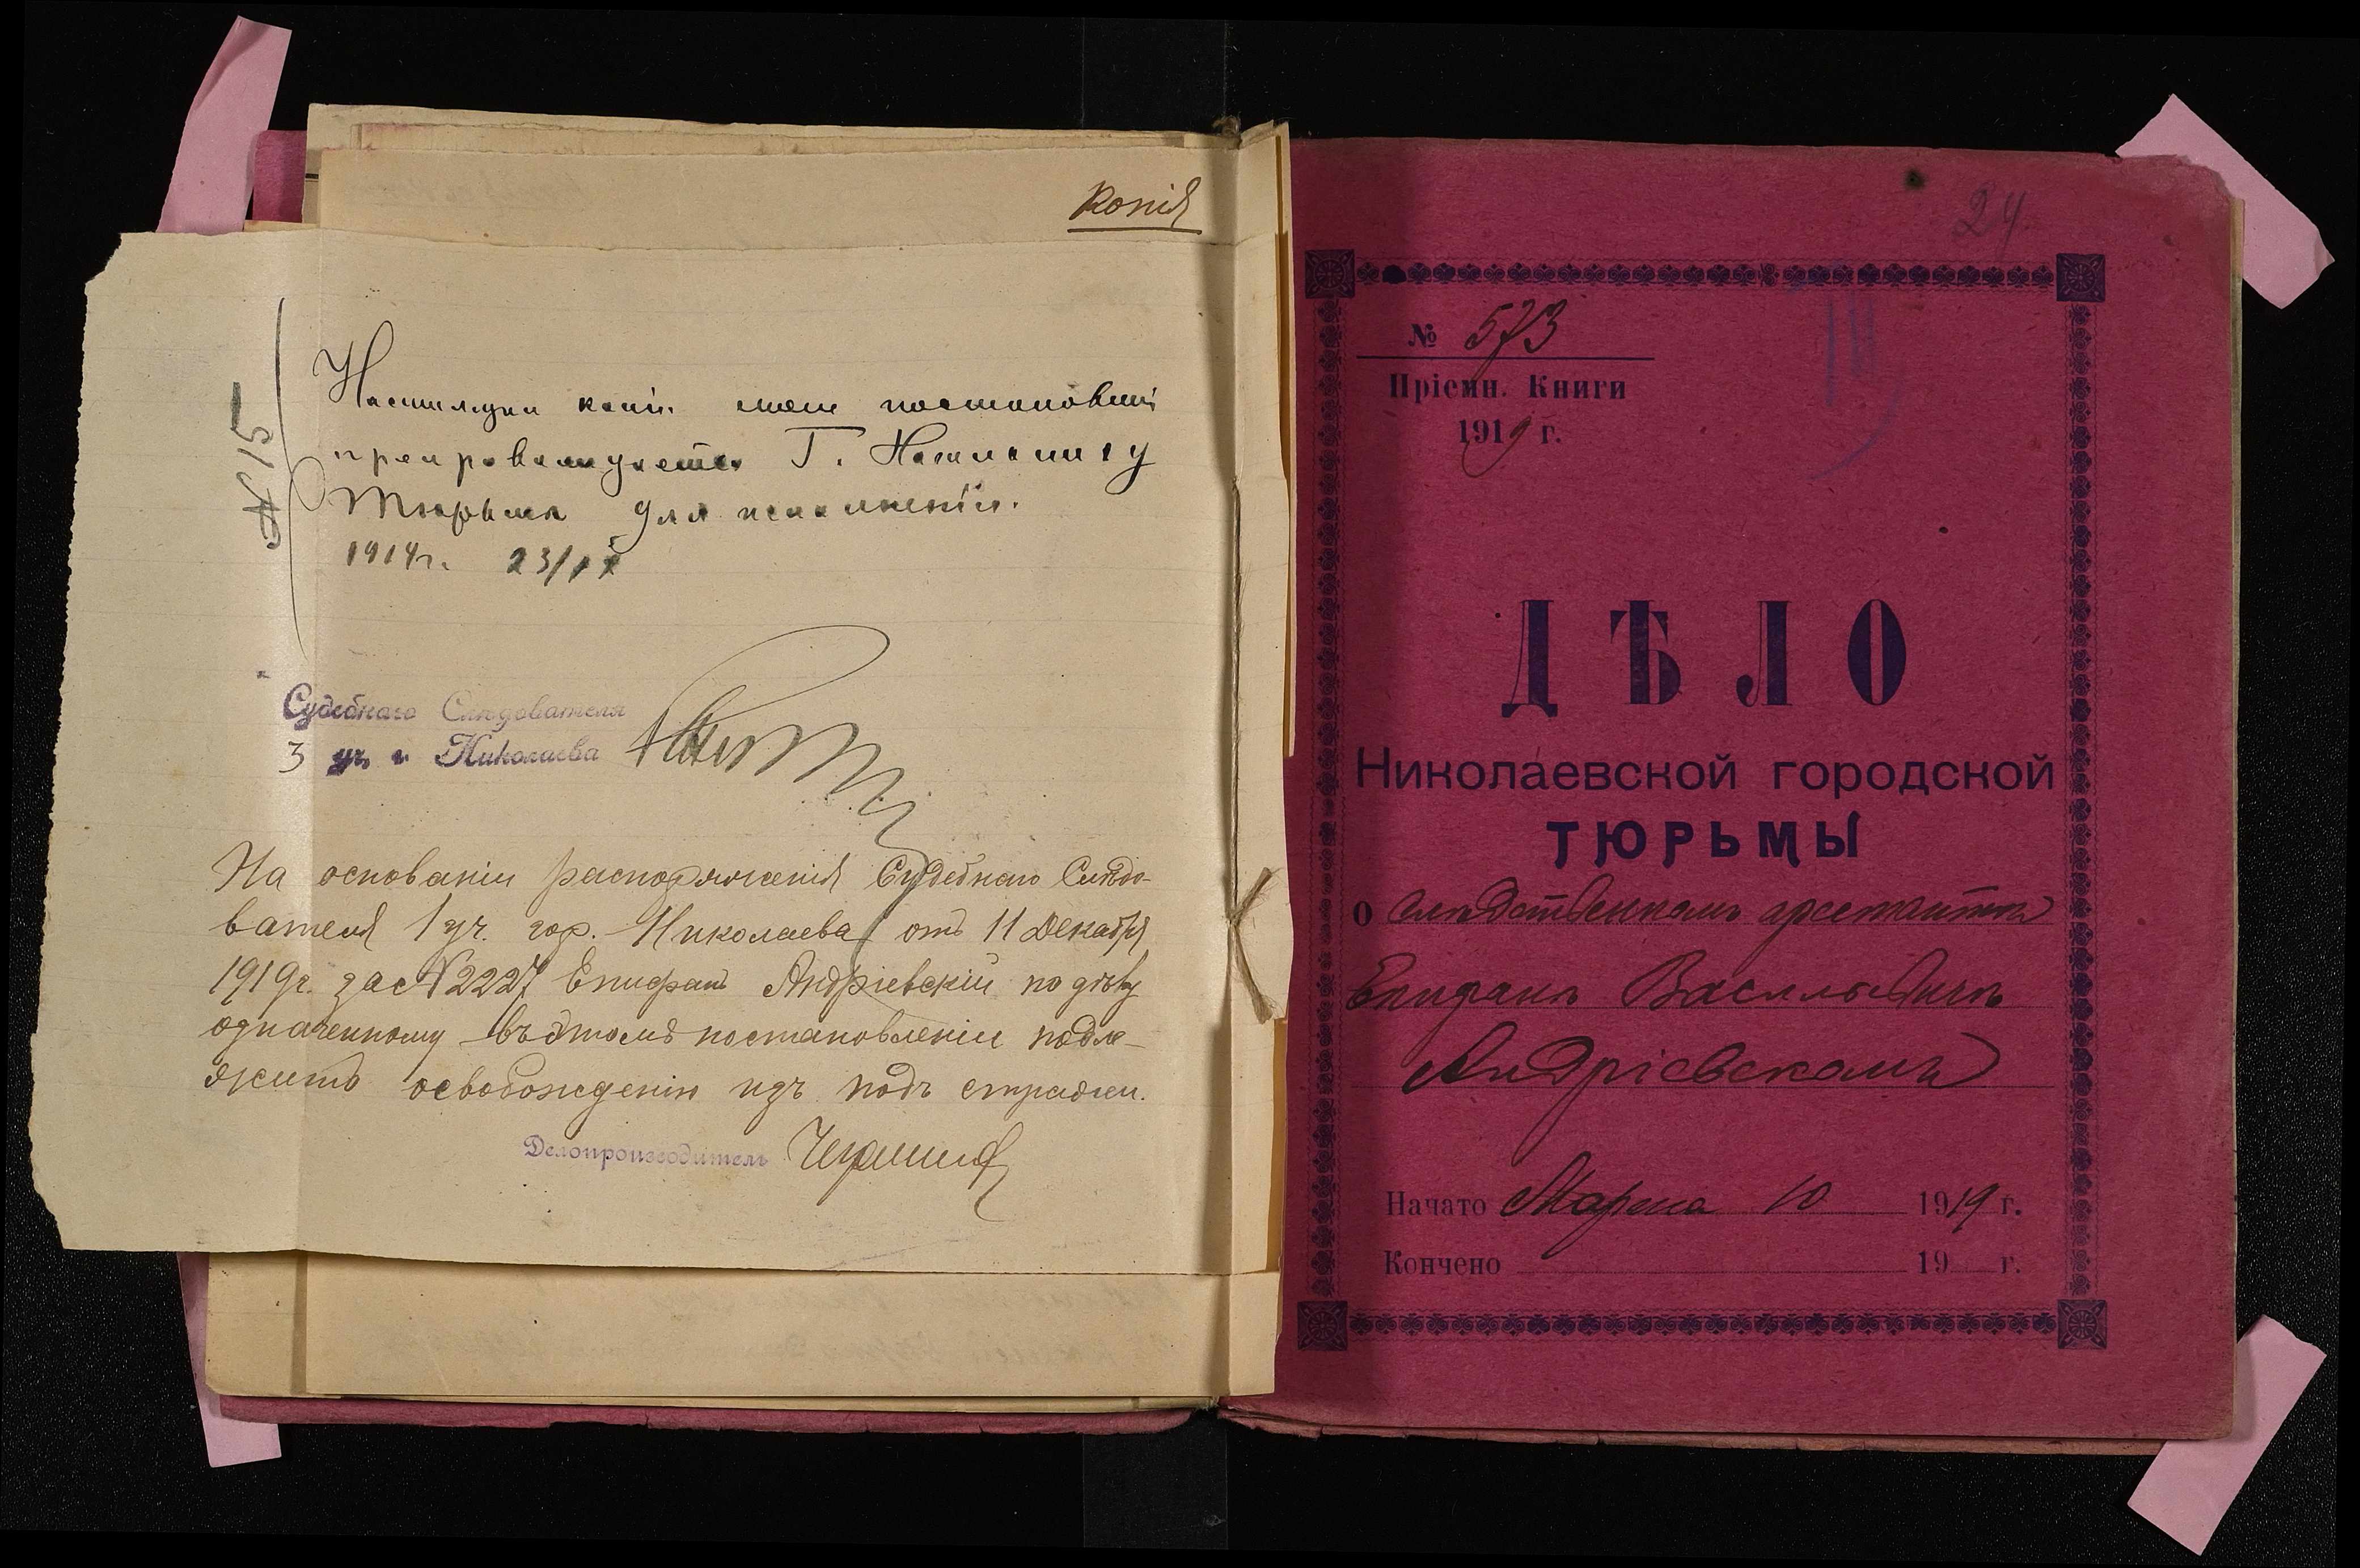 Копія
№ 15
Настоящая копія моего постановленія
препровождается Г. Начальнику
Тюрьмы для исполненія.
1919г. 23/IX
Судебнаго Слѣдователя
3 уч. г. Николаева
На основаніи распоряженія Судебнаго Слѣдо-
вателя 1 уч. гор. Николаева отъ 11 Декабря
1919г. за №2227 Епифанъ Андріевскій по дѣлу
означенному въ этомъ постановленіи подле-
житъ освобожденію изъ подъ стражи.
Делопроизводитель
24
№ 573
Пріемн. Книги
1919 г.
ДѢЛО
Николаевской городской
ТЮРЬМЫ
О слѣдственномъ арестантѣ
Епифанѣ Васильевичѣ
Андріевскомъ
Начато Марта 10 1919 г.
Кончено 19 г.